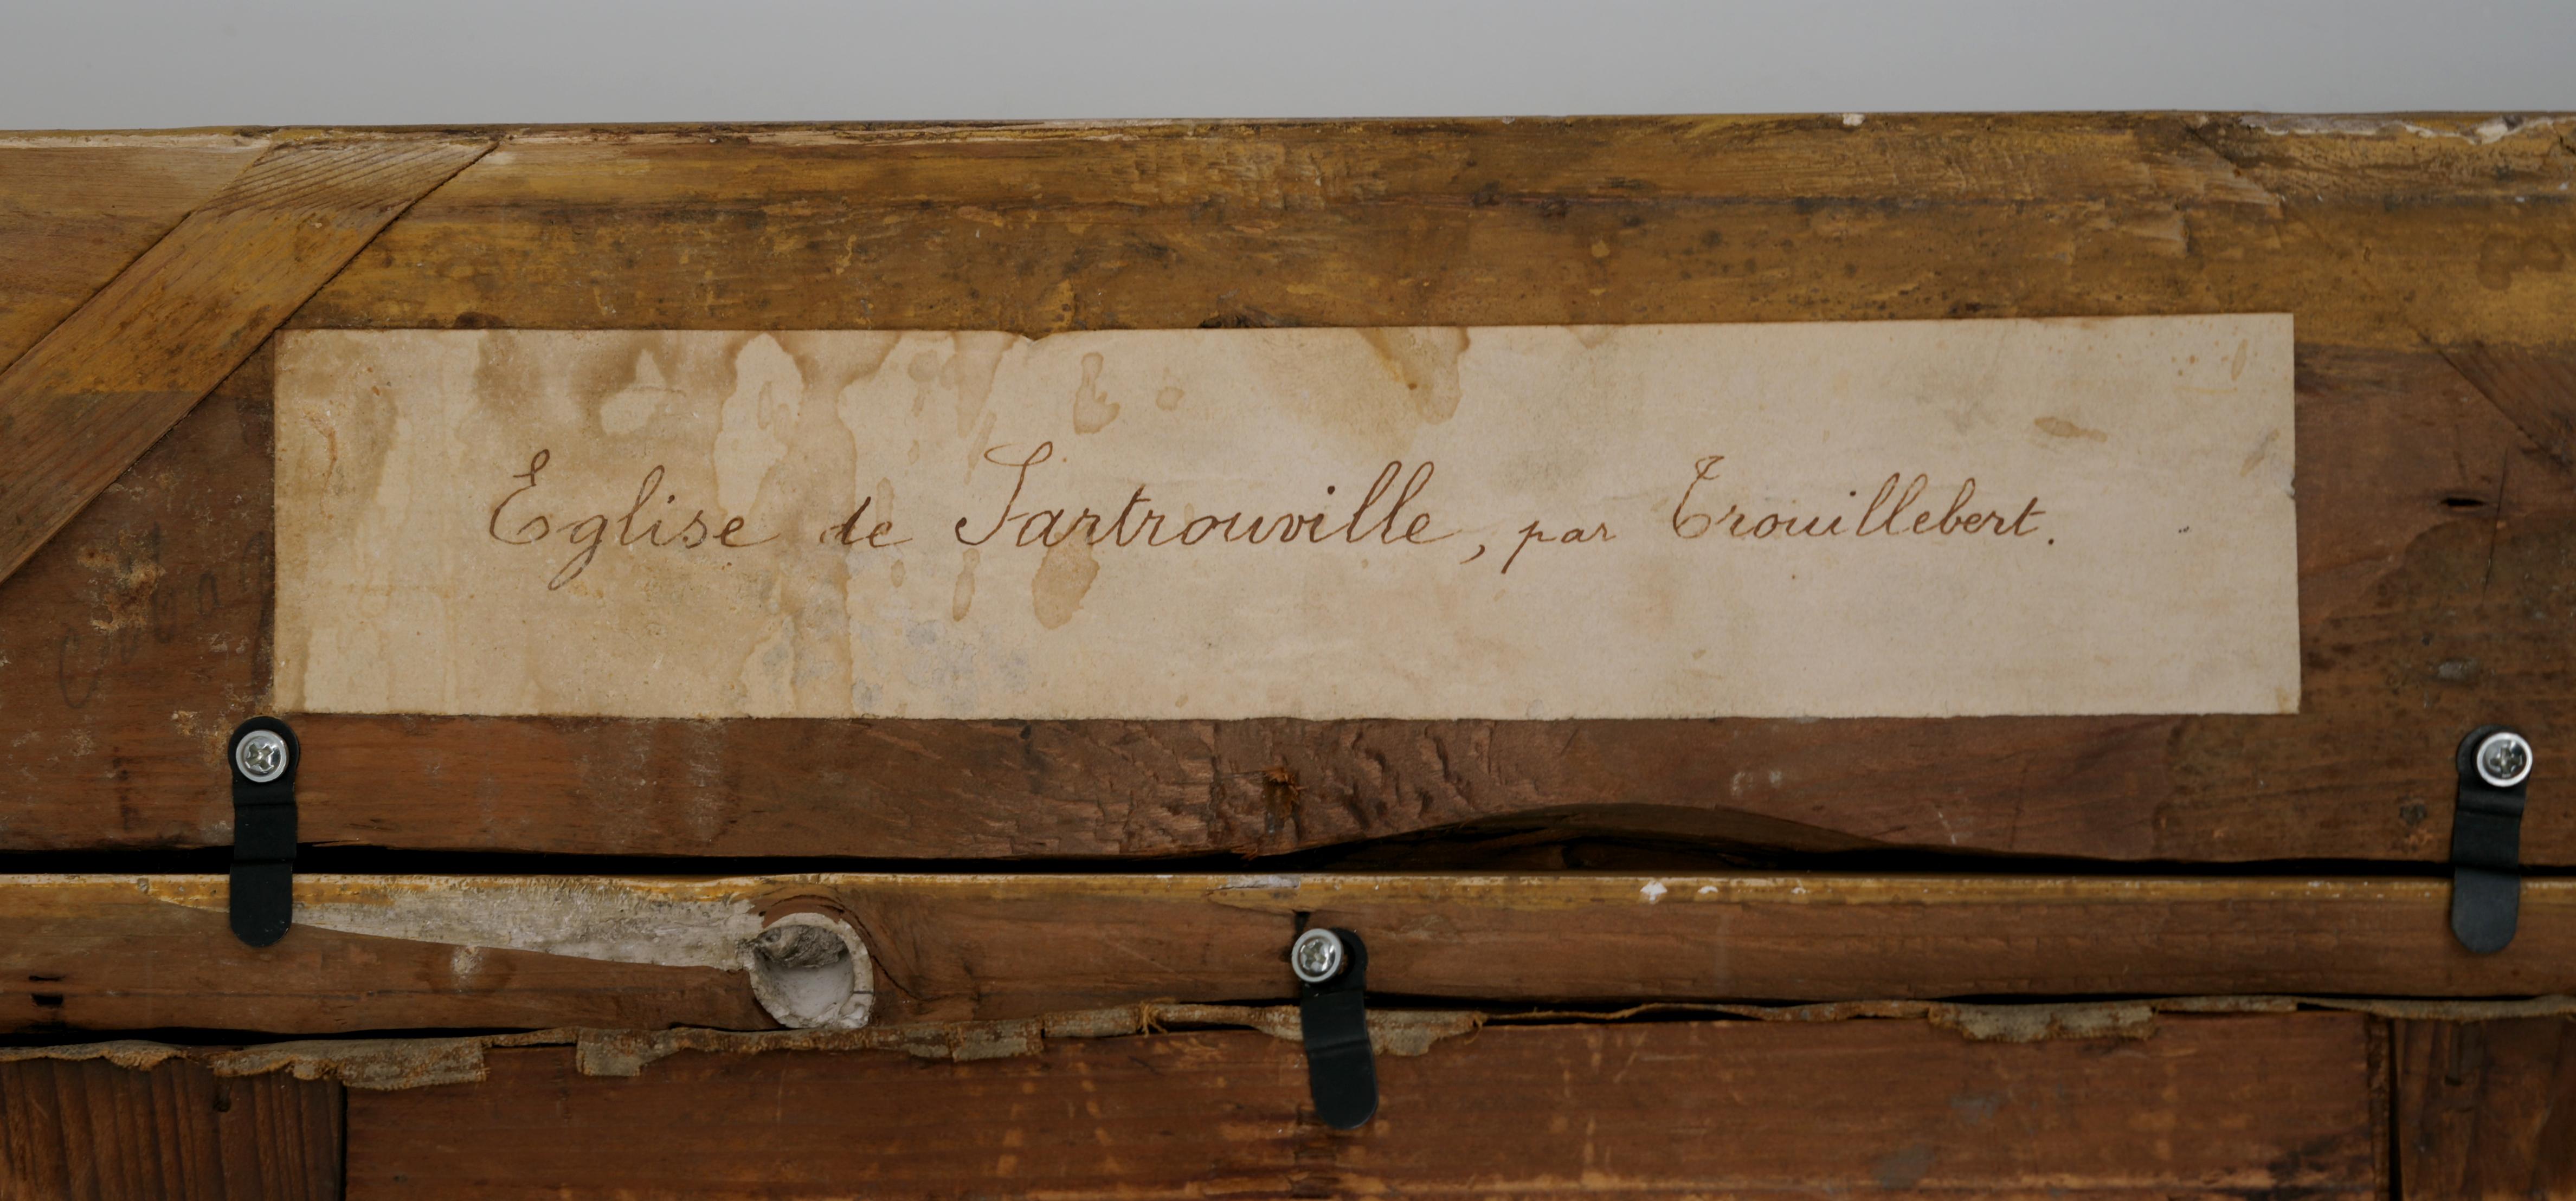 Eglise de Sartrouville, par Trouillebert.